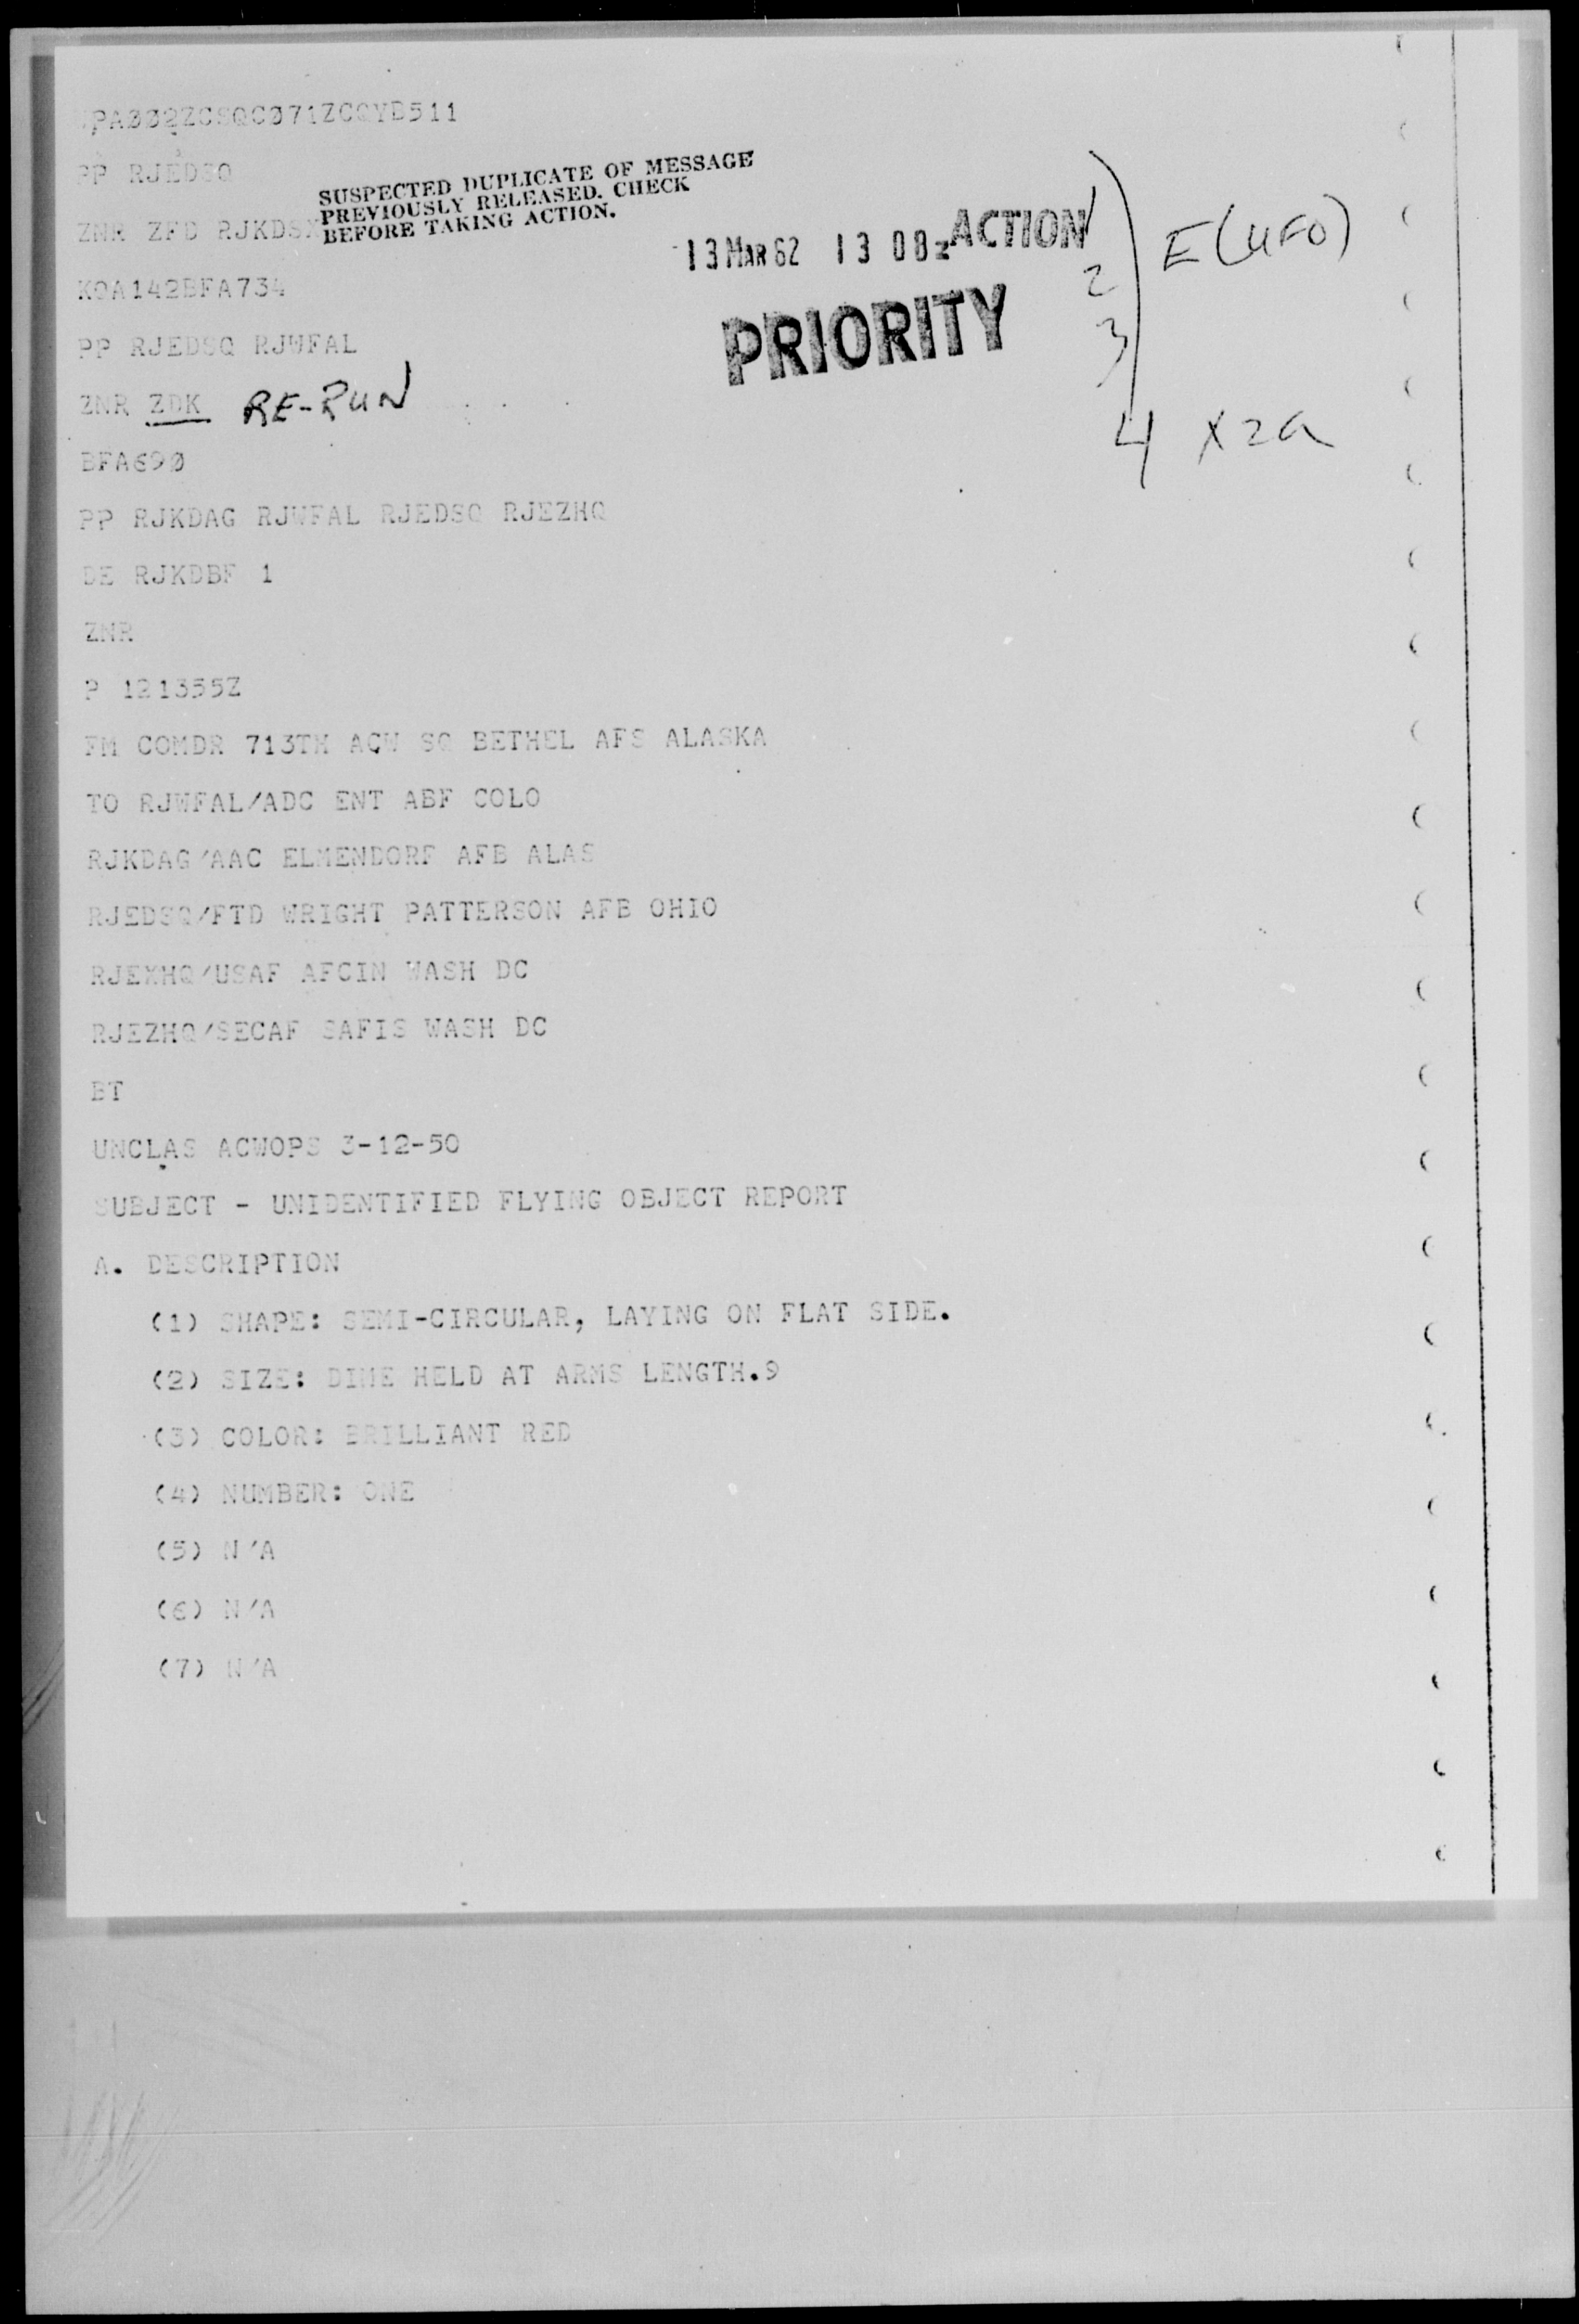 PP RJEDSQ
SUSPECTED DUPLICATE OF MESSAGE
PREVIOUSLY RELEASED. CHECK
BEFORE TAKING ACTION.
ZNR ZFD RJKDSX
13 MAR 62 13 08z ACTION
E(UFO)
2
3
4 X2a
PRIORITY
KQA142BFA734
PP RJEDSQ RJWFAL
ZNR ZDK RE-RUN
BFA690
PP RJKDAG RJWFAL RJEDSQ RJEZHQ
DE RJKDBF 1
ZNR
P 121355Z
FM COMDR 713TH ACW SQ BETHEL AFS ALASKA
TO RJWFAL/ADC ENT ABF COLO
RJKDAG/AAC ELMENDORF AFB ALAS
RJEDSQ/FTD WRIGHT PATTERSON AFB OHIO
RJEXHQ/USAF AFCIN WASH DC
RJEZHQ/SECAF SAFIS WASH DC
BT
UNCLAS ACWOPS 3-12-50
SUBJECT - UNIDENTIFIED FLYING OBJECT REPORT
A. DESCRIPTION
(1) SHAPE: SEMI-CIRCULAR, LAYING ON FLAT SIDE.
(2) SIZE: DIME HELD AT ARMS LENGTH.9
(3) COLOR: BRILLIANT RED
(4) NUMBER: ONE
(5) N/A
(6) N/A
(7) N/A